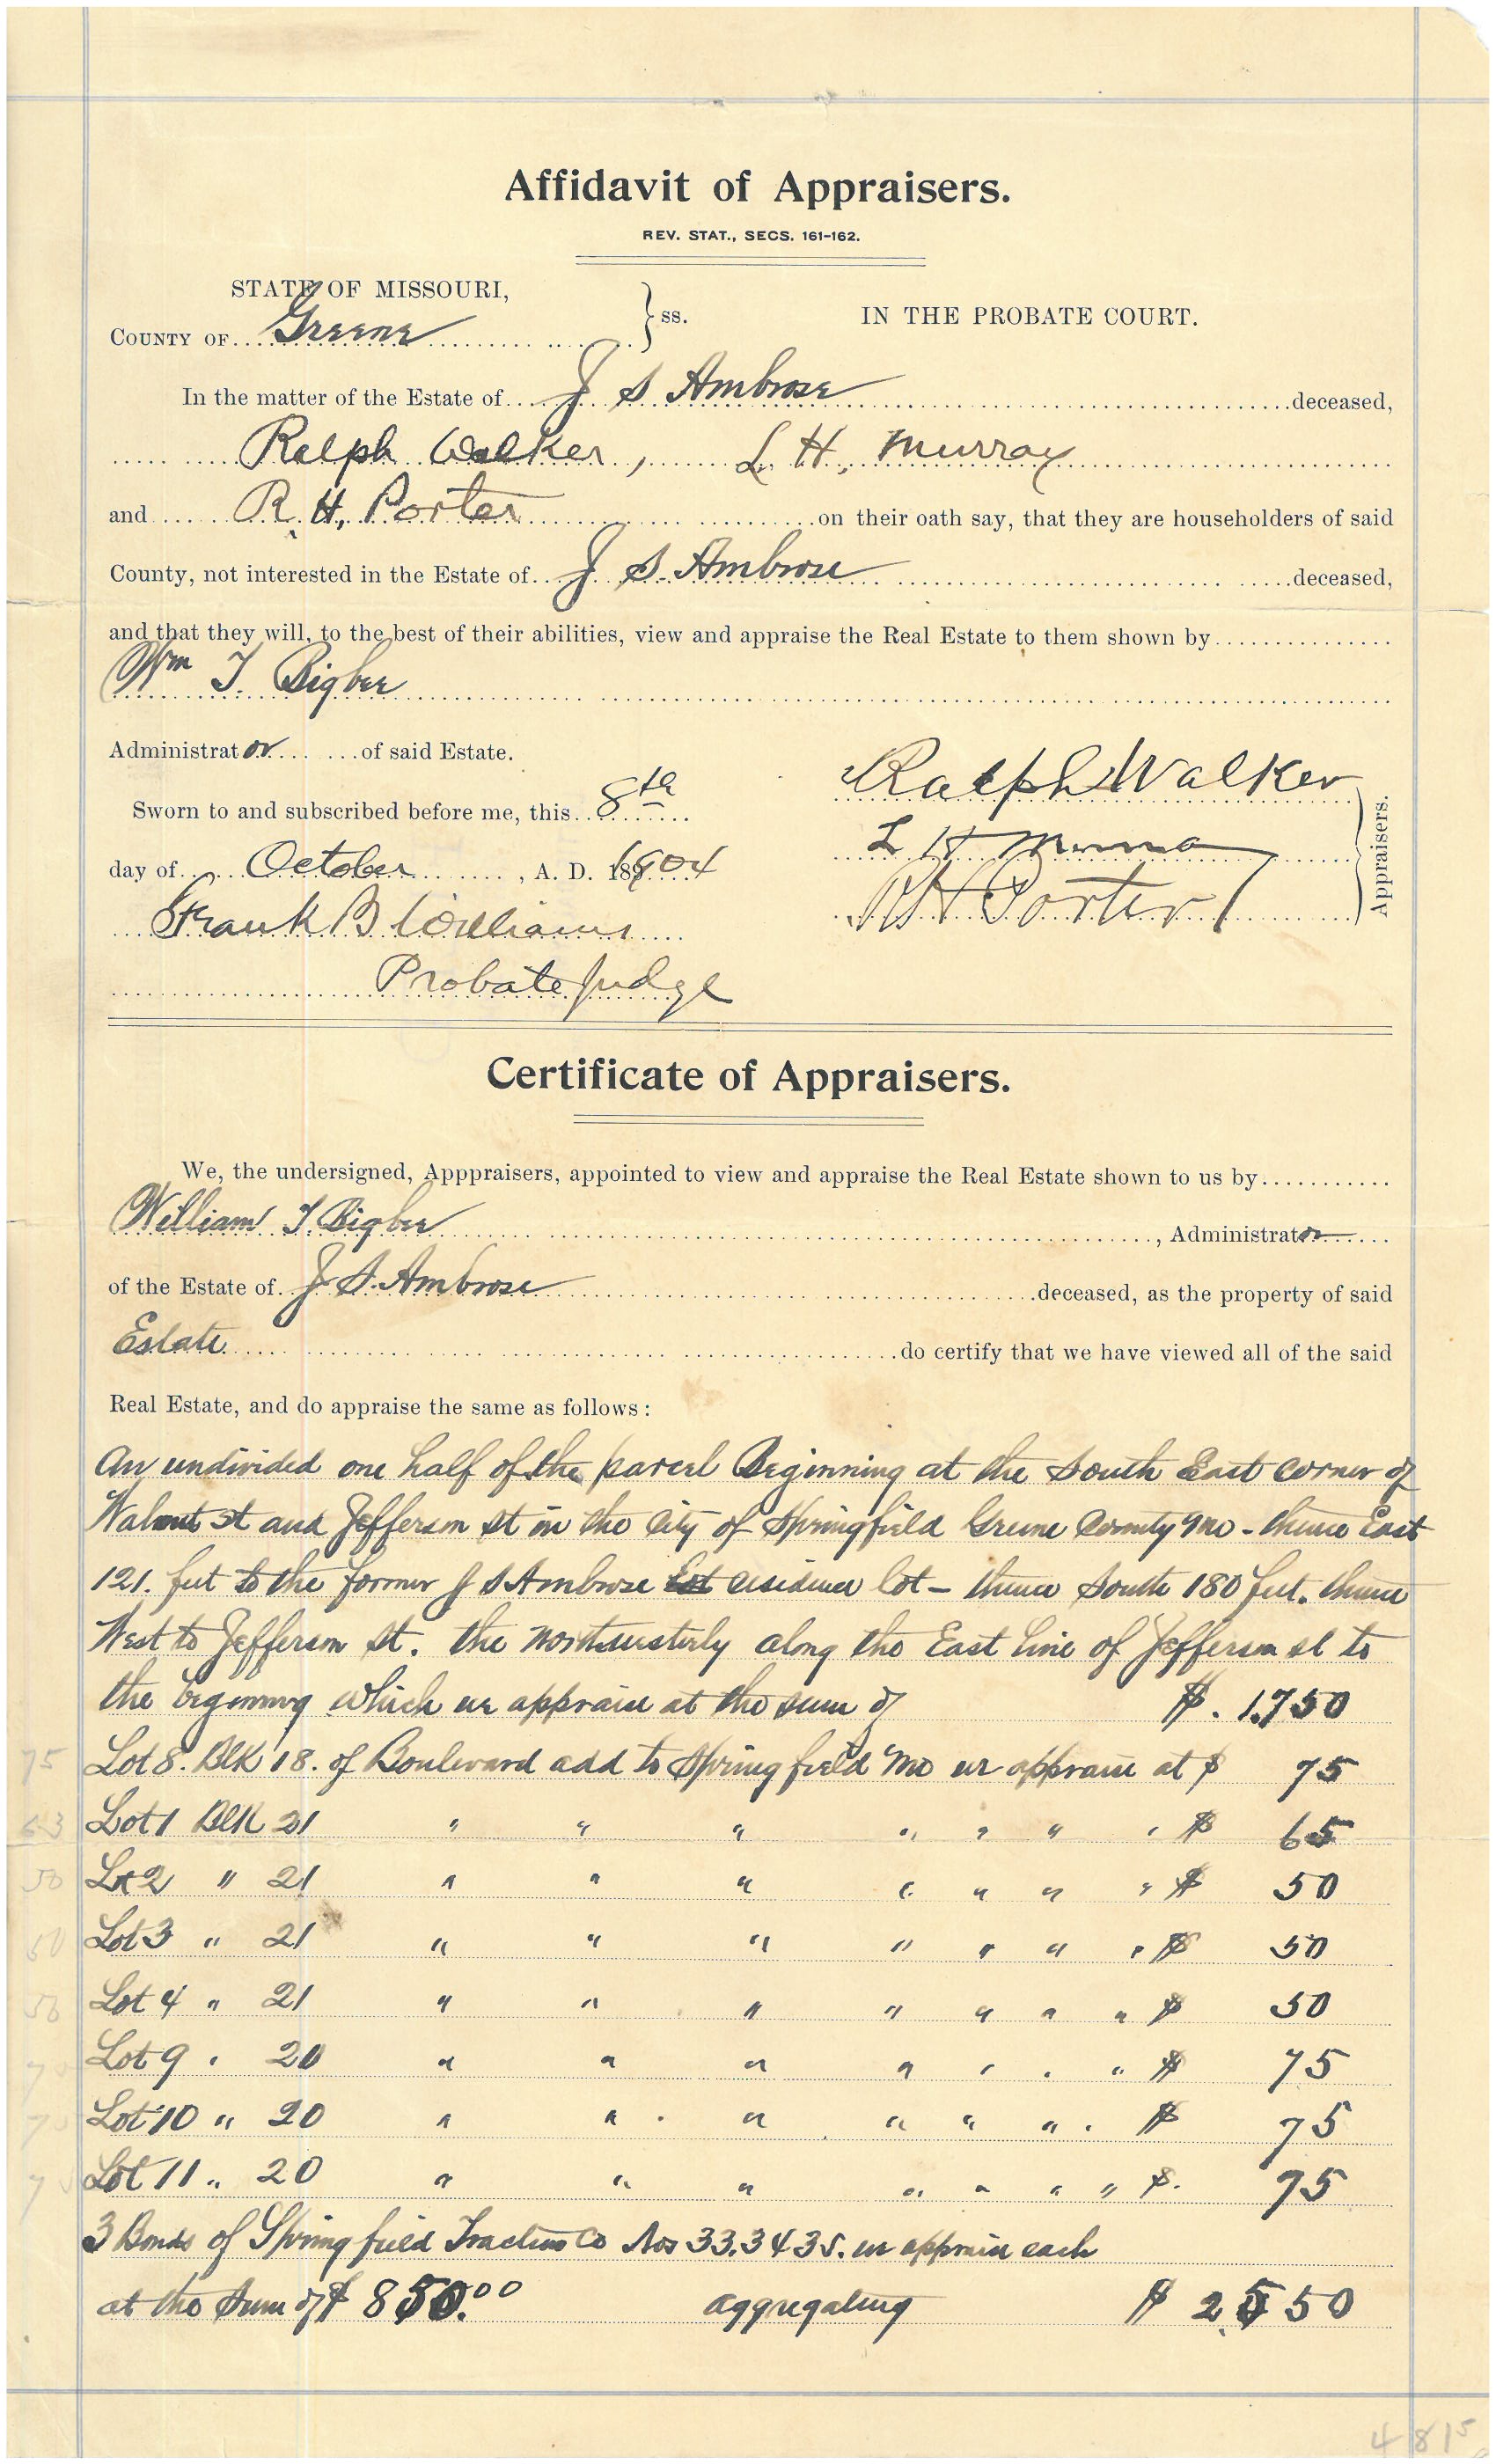 Affidavit of Appraisers.
REV. STAT., SECS. 161-162.
STATE OF MISSOURI,
COUNTY OF Greene } ss. IN THE PROBATE COURT.
In the matter of the Estate of J S Ambrose deceased,
Ralph Walker, L H, Murray
and R. H, Porter on their oath say, that they are householders of said
County, not interested in the Estate of J S. Ambrose deceased,
and that they will, to the best of their abilities, view and appraise the Real Estate to them shown by
Wm T. Bigbee
Administrator of said Estate.
Sworn to and subscribed before me, this 8th
day of October, A. D. 1904
Frank B Williams
Probate Judge
Ralph Walker
L H Murray
R H Porter
Appraisers.
Certificate of Appraisers.
We, the undersigned, Apppraisers, appointed to view and appraise the Real Estate shown to us by
William T. Bigbee, Administrator
of the Estate of J. S. Ambrose deceased, as the property of said
Estate do certify that we have viewed all of the said
Real Estate, and do appraise the same as follows:
An undivided one half of the parcel Beginning at the South East corner of
Walnut st and Jefferson st in the City of Springfield Greene County Mo - thence East
121. feet to the former J S Ambrose residence lot - thence South 180 feet. thence
West to Jefferson St. the northwesterly along the East line of Jefferson st to
the beginning which we appraise at the sum of $. 1.750
75 Lot 8. Blk 18. of Boulevard add to Springfield Mo we appraise at $ 75
63 Lot 1 Blk 21 " " " " " " " $ 65
50 Lot 2 " 21 " " " " " " " $ 50
50 Lot 3 " 21 " " " " " " " $ 50
50 Lot 4 " 21 " " " " " " " $ 50
Lot 9 " 20 " " " " " " " $ 75
Lot 10 " 20 " " " " " " " $ 75
Lot 11 " 20 " " " " " " " $. 75
3 Bonds of Springfield Traction Co Nos 33.34 35. we appraise each
at the sum of $ 850.00 aggregating $ 2,550
4815